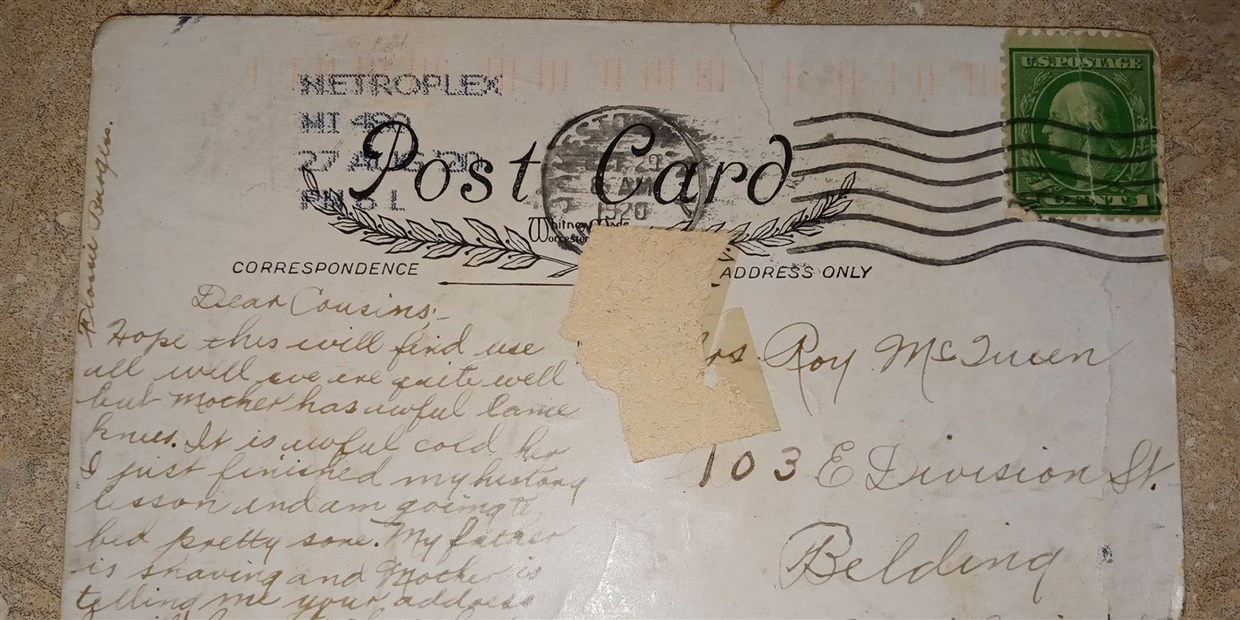 METROPLEX
MI 480
27 AUG '20
PM 8 L
U.S. POSTAGE
29
AM
1920
CENT 1
Post Card
Whitney Made
Worcester
CORRESPONDENCE
ADDRESS ONLY
Flossie Burgess.
Dear Cousins;-
Hope this will find use
all well we are quite well
but Mother has awful lame
knees. It is awful cold her
I just finished my history
lesson and am going t
bed pretty sone. My father
is shaving and Mother is
telling me your address
rs. Roy McQueen
103 E Division St.
Belding